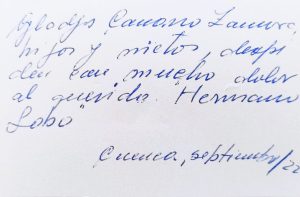 Gladys Cansano Zamora,
hijos y nietos, despi
den con mucho dolor
al querido. Hermano
Lobo
Cuenca, septiembre/22